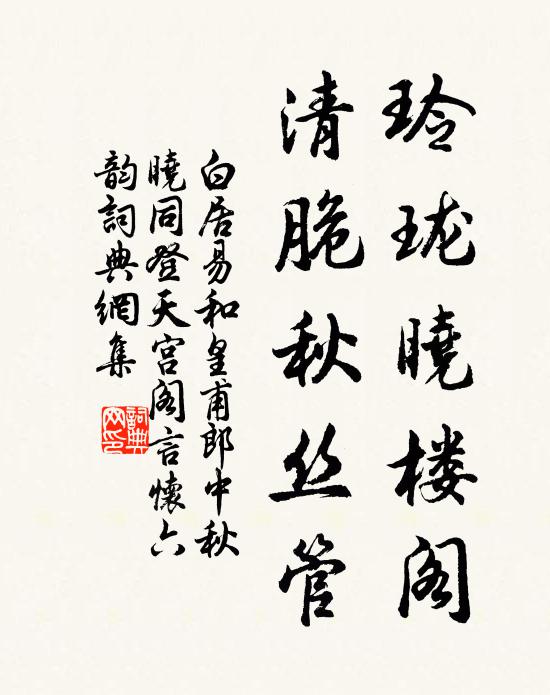 玲珑曉楼阁
清脆秋丝管
白居易和皇甫郎中秋
曉同登天宫阁言懷六
韵詞典網集
詞典
网印